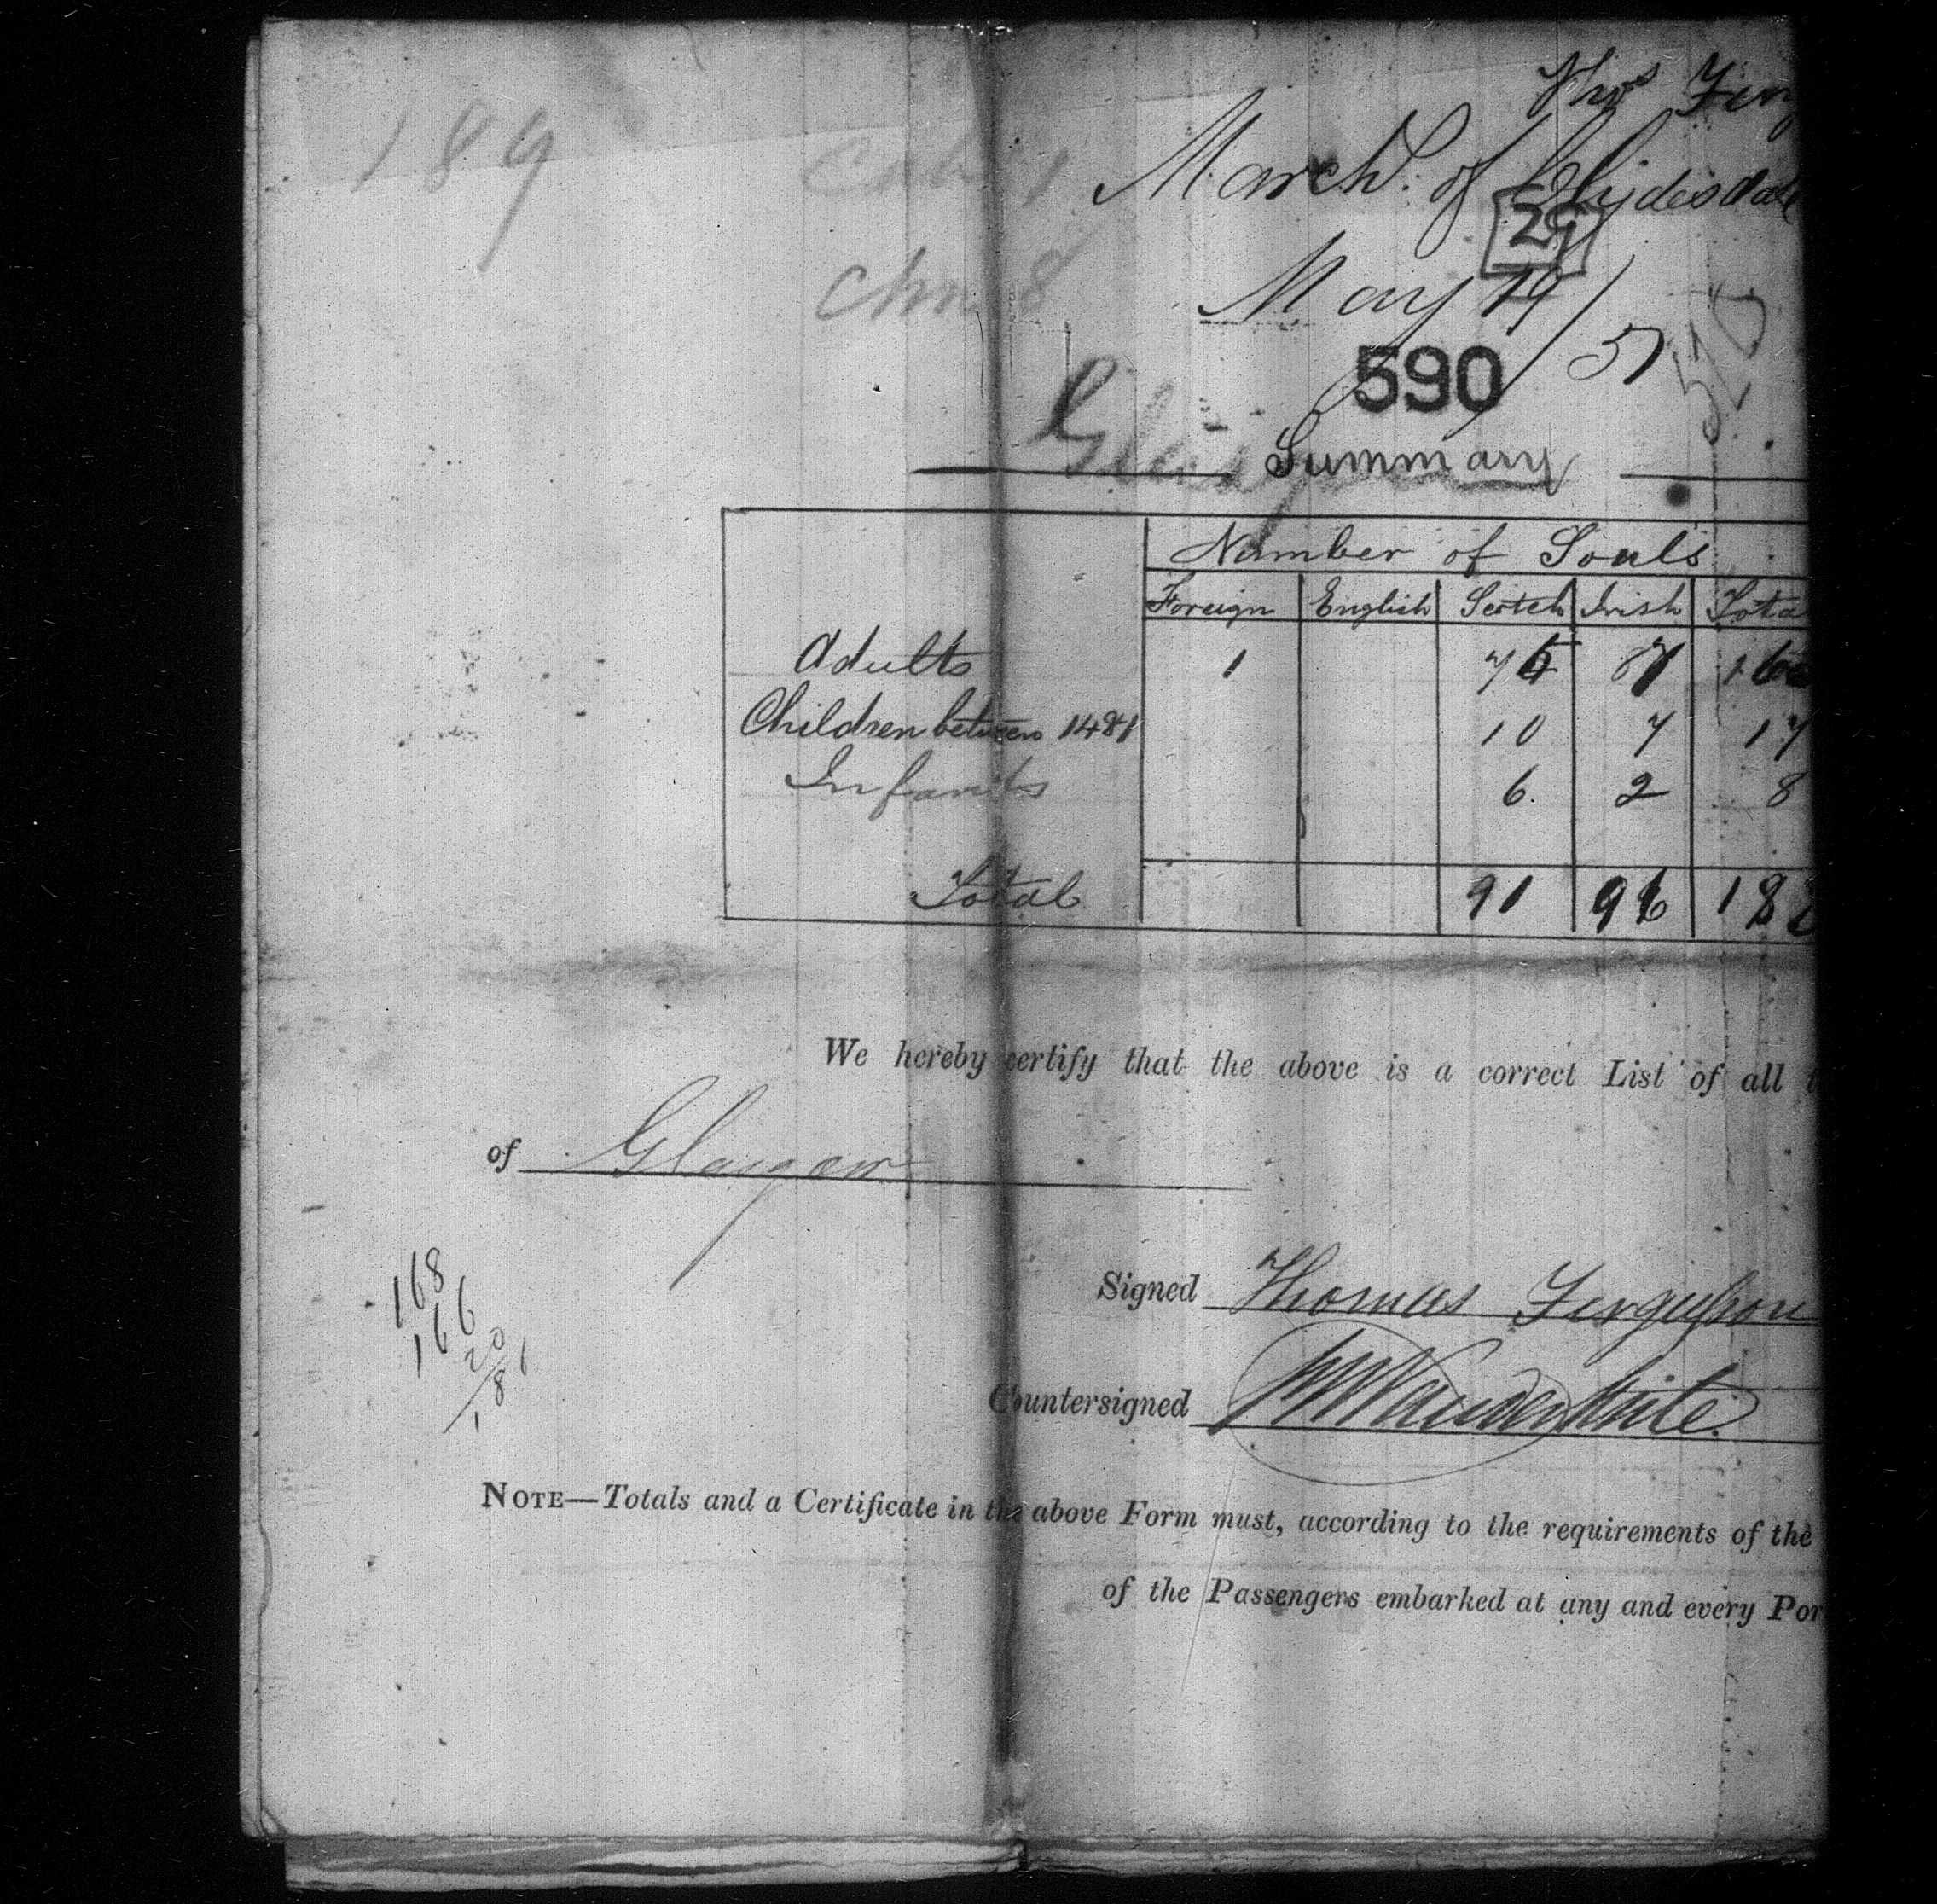 189
Thos Ferg
Cab 1
March. of Clydesdale
29
Chn 8
May 19/51
590
Glasgow
Summary
Number of Souls
Foreign English Scotch Irish Tota
Adults 1 75 87
Children between 14 & 1 10 7 17
Infants 6 2 8
Total 91 96 188
We hereby certify that the above is a correct List of all t
of Glasgow
168
166
20
181
Signed Thomas Ferguson
Countersigned
NOTE—Totals and a Certificate in the above Form must, according to the requirements of the
of the Passengers embarked at any and every Por